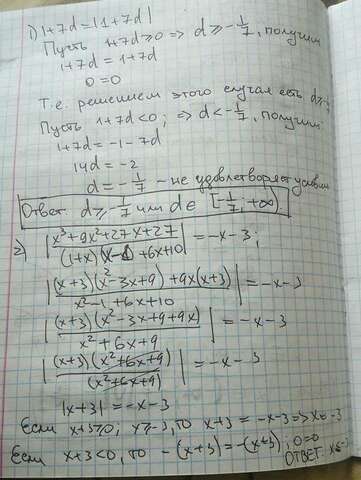 1) 1+7d=|1+7d|
Пусть 1+7d≥0 => d≥-1/7, получим
1+7d=1+7d
0=0
Т.е. решением этого случая есть d≥-
Пусть 1+7d<0; => d<-1/7, получим:
1+7d=-1-7d
14d=-2
d=-1/7 - не удовлетворяет условию
Ответ: d≥-1/7 или d∈[-1/7; +∞).
2) |(x³+9x²+27x+27)/((1+x)(x-1)+6x+10)|=-x-3;
|((x+3)(x²-3x+9)+9x(x+3))/(x²-1+6x+10)|=-x-3
|((x+3)(x²-3x+9+9x))/(x²+6x+9)|=-x-3
|((x+3)(x²+6x+9))/(x²+6x+9)|=-x-3
|x+3|=-x-3
Если x+3≥0; x≥-3, то x+3=-x-3 => x=-3
Если x+3<0, то -(x+3)=-(x+3); 0=0
ОТВЕТ: x≤-